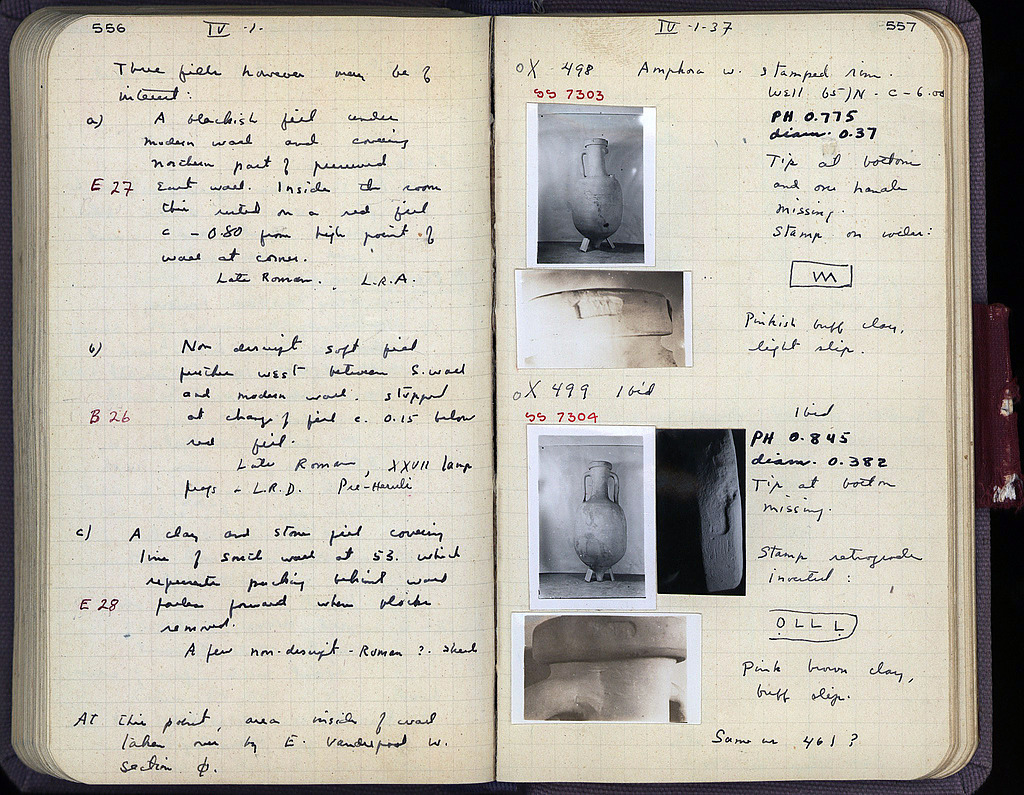 556
IV - 1 -
Three fills however may be of
interest:
a) A blackish fill under
modern wall and covering
northern part of preserved
E 27 East wall. Inside the room
this rested on a red fill
c - 0.80 from high point of
wall at corner.
Late Roman. L.R.A.
b) Non descript soft fill
further west between S. wall
and modern wall. Stopped
B 26 at change of fill c. 0.15 below
red fill.
Late Roman, XXVII lamp
frags - L.R.D. Pre-Heruli
c) A clay and stone fill covering
line of south wall at 53. which
represents packing behind wall
E 28 fallen forward when blocks
removed.
A few non-descript - Roman ? sherds
At this point, area inside of wall
taken over by E. Vanderpool w.
section φ.
557
IV - 1 - 37
OX 498 Amphora w. stamped rim.
SS 7303
Well 65/N - C - 6.00
PH 0.775
diam. 0.37
Tip at bottom
and one handle
missing.
Stamp on collar:
Pinkish buff clay,
light slip.
OX 499 Ibid
SS 7304
Ibid
PH 0.845
diam. 0.382
Tip at bottom
missing.
Stamp retrograde
inverted:
OLLL
Pink brown clay,
buff slip.
Same as 461?